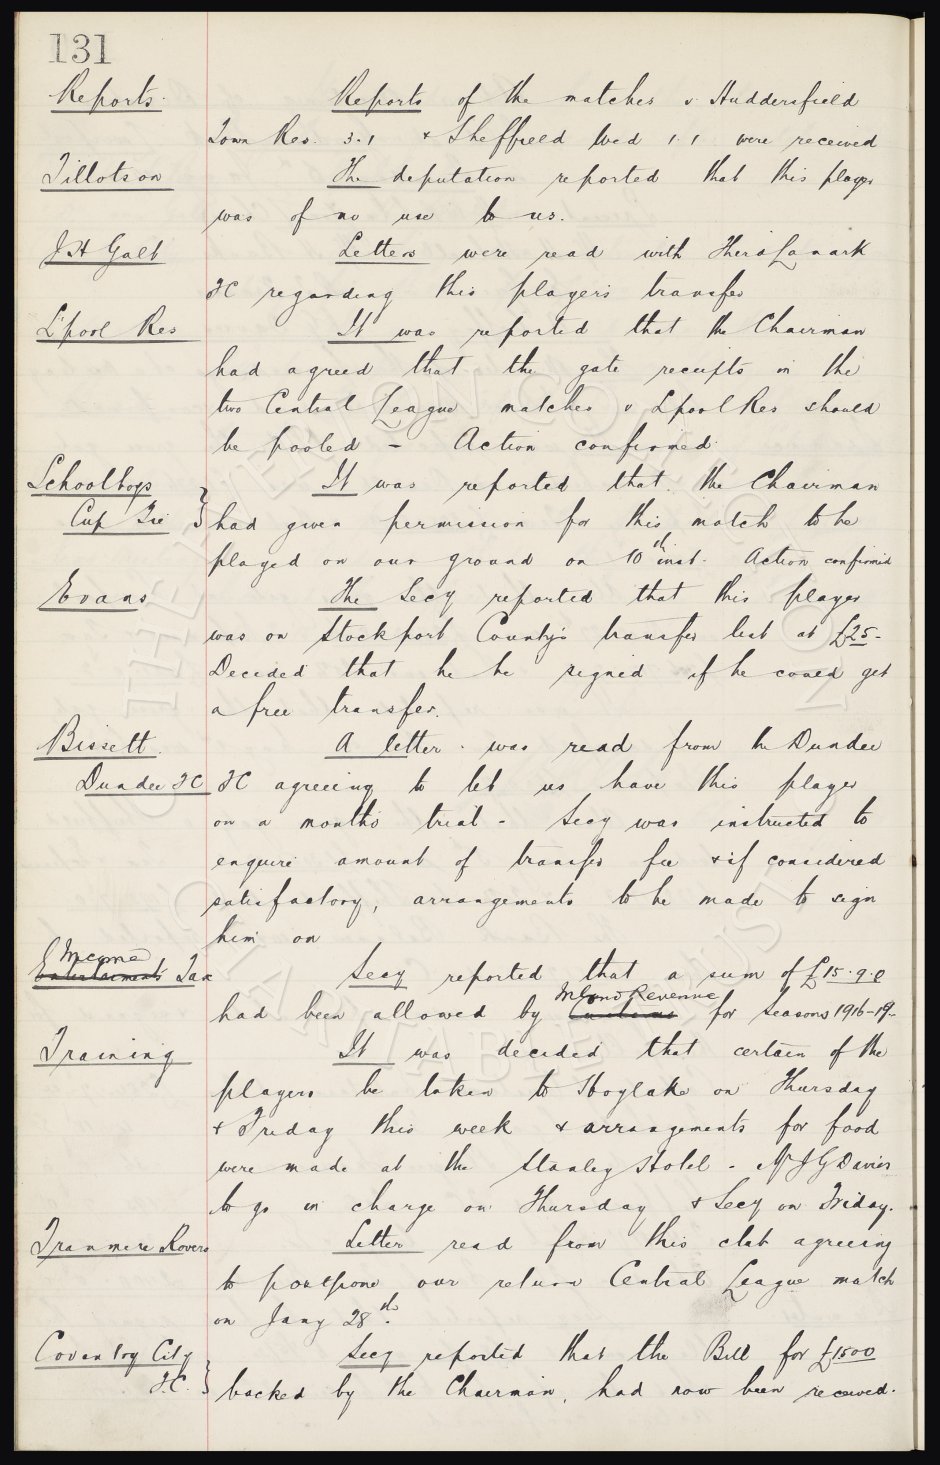 131
Reports. Reports of the matches v Huddersfield
Town Res. 3.1 & Sheffield Wed 1.1. were received
Tillotson The deputation reported that this player
was of no use to us.
J H Galt Letters were read with Third Lanark
FC regarding this player's transfer
L'pool Res It was reported that the Chairman
had agreed that the gate receipts in the
two Central League matches v Lpool Res should
be pooled - Action confirmed.
Schoolboys It was reported that the Chairman
Cup Tie } had given permission for this match to be
played on our ground on 10th inst. Action confirmed
Evans The Secy reported that this player
was on Stockport County's transfer list at £25-
Decided that he be signed if he could get
a free transfer.
Bissett. A letter was read from the Dundee
Dundee FC FC agreeing to let us have this player
on a month's trial - Secy was instructed to
enquire amount of transfer fee & if considered
satisfactory, arrangements to be made to sign
him on
Income
Entertainments Tax Secy reported that a sum of £15.9.0
Inland Revenue
had been allowed by Customs for Seasons 1916-19-
Training It was decided that certain of the
players be taken to Hoylake on Thursday
& Friday this week & arrangements for food
were made at the Stanley Hotel - Mr J G Davies
to go in charge on Thursday & Secy on Friday.
Tranmere Rovers Letter read from this club agreeing
to postpone our return Central League match
on Jany 28th.
Coventry City Secy reported that the Bill for £1500
F.C. } backed by the Chairman, had now been received.